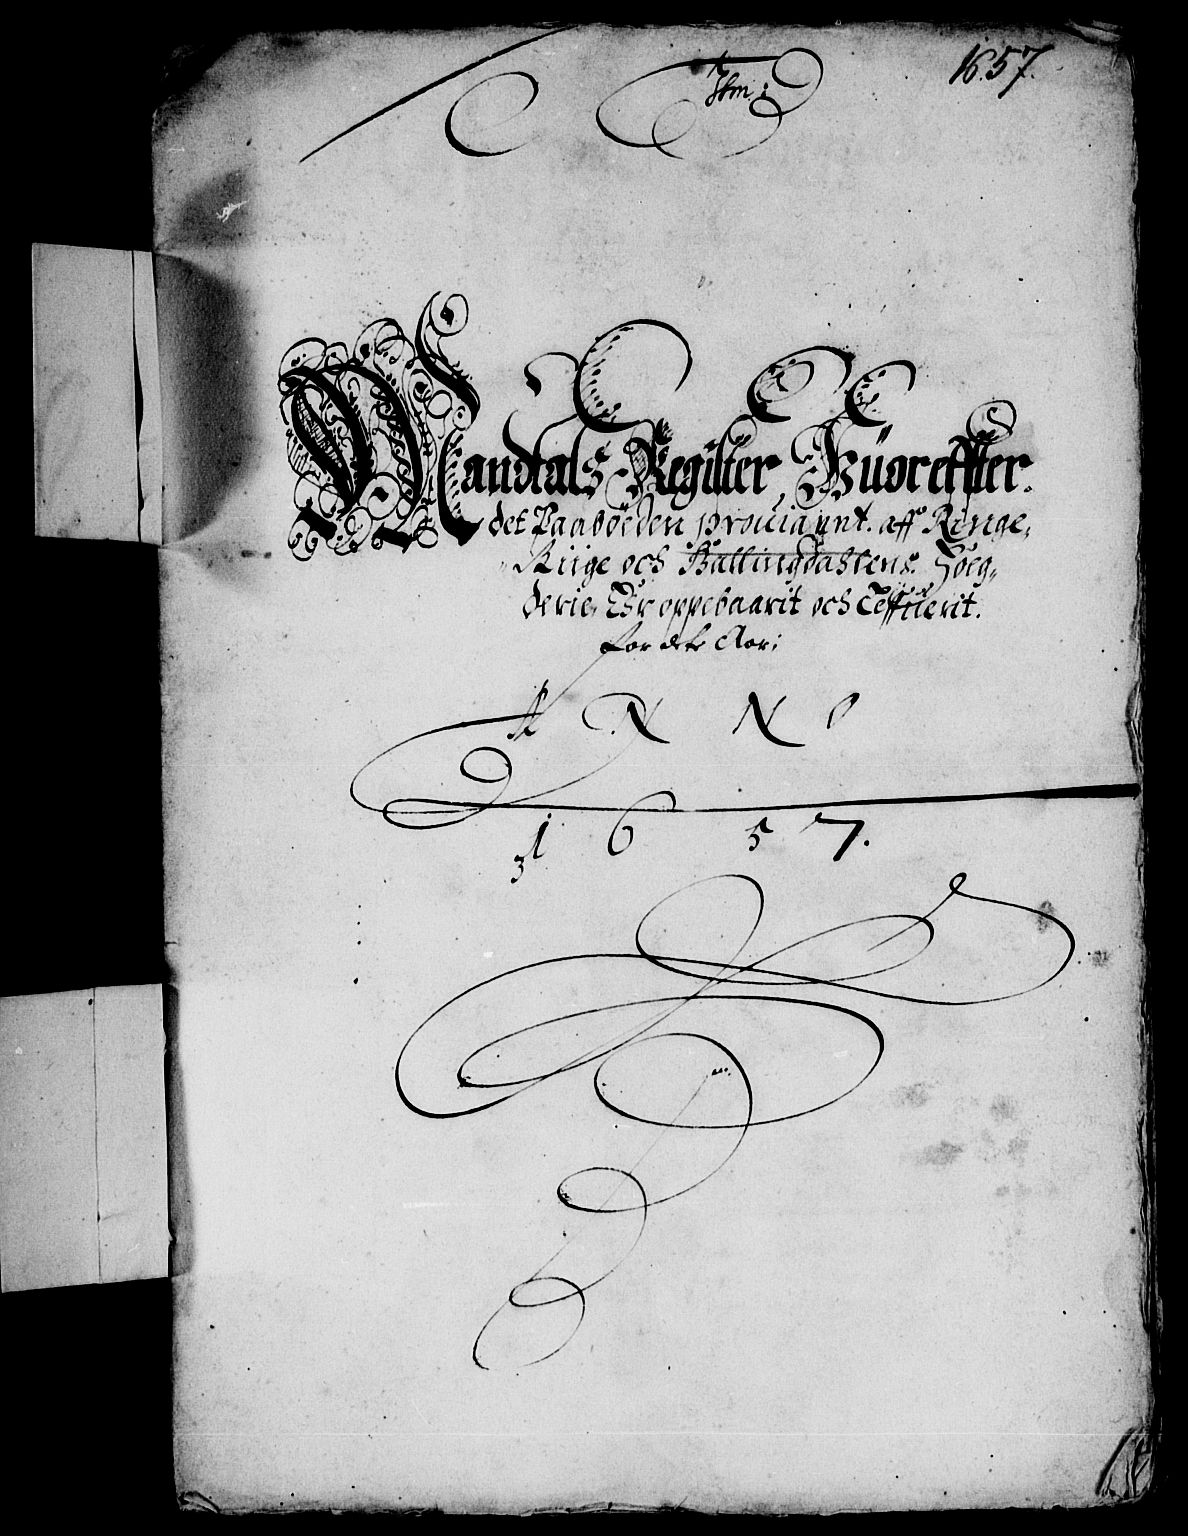 1657.
Mandtals Register, Huoreffter.
det Paabóeden prouiannt. aff Ringe,
Riige och Hallingdahlens. Foeg,
derie, Er oppebaarit och Lefuerit.
for dete Aar;
A N N O
1 6 5 7.
3